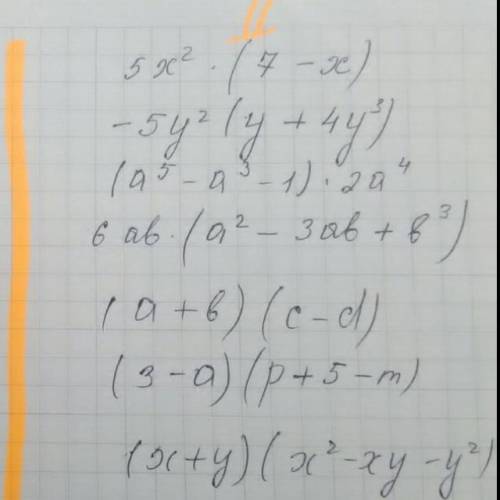 5x² · (7 - x)
-5y² (y + 4y³)
(a⁵ - a³ - 1) · 2a⁴
6ab · (a² - 3ab + b³)
(a + b) (c - d)
(3 - a) (p + 5 - m)
(x + y) (x² - xy - y²)